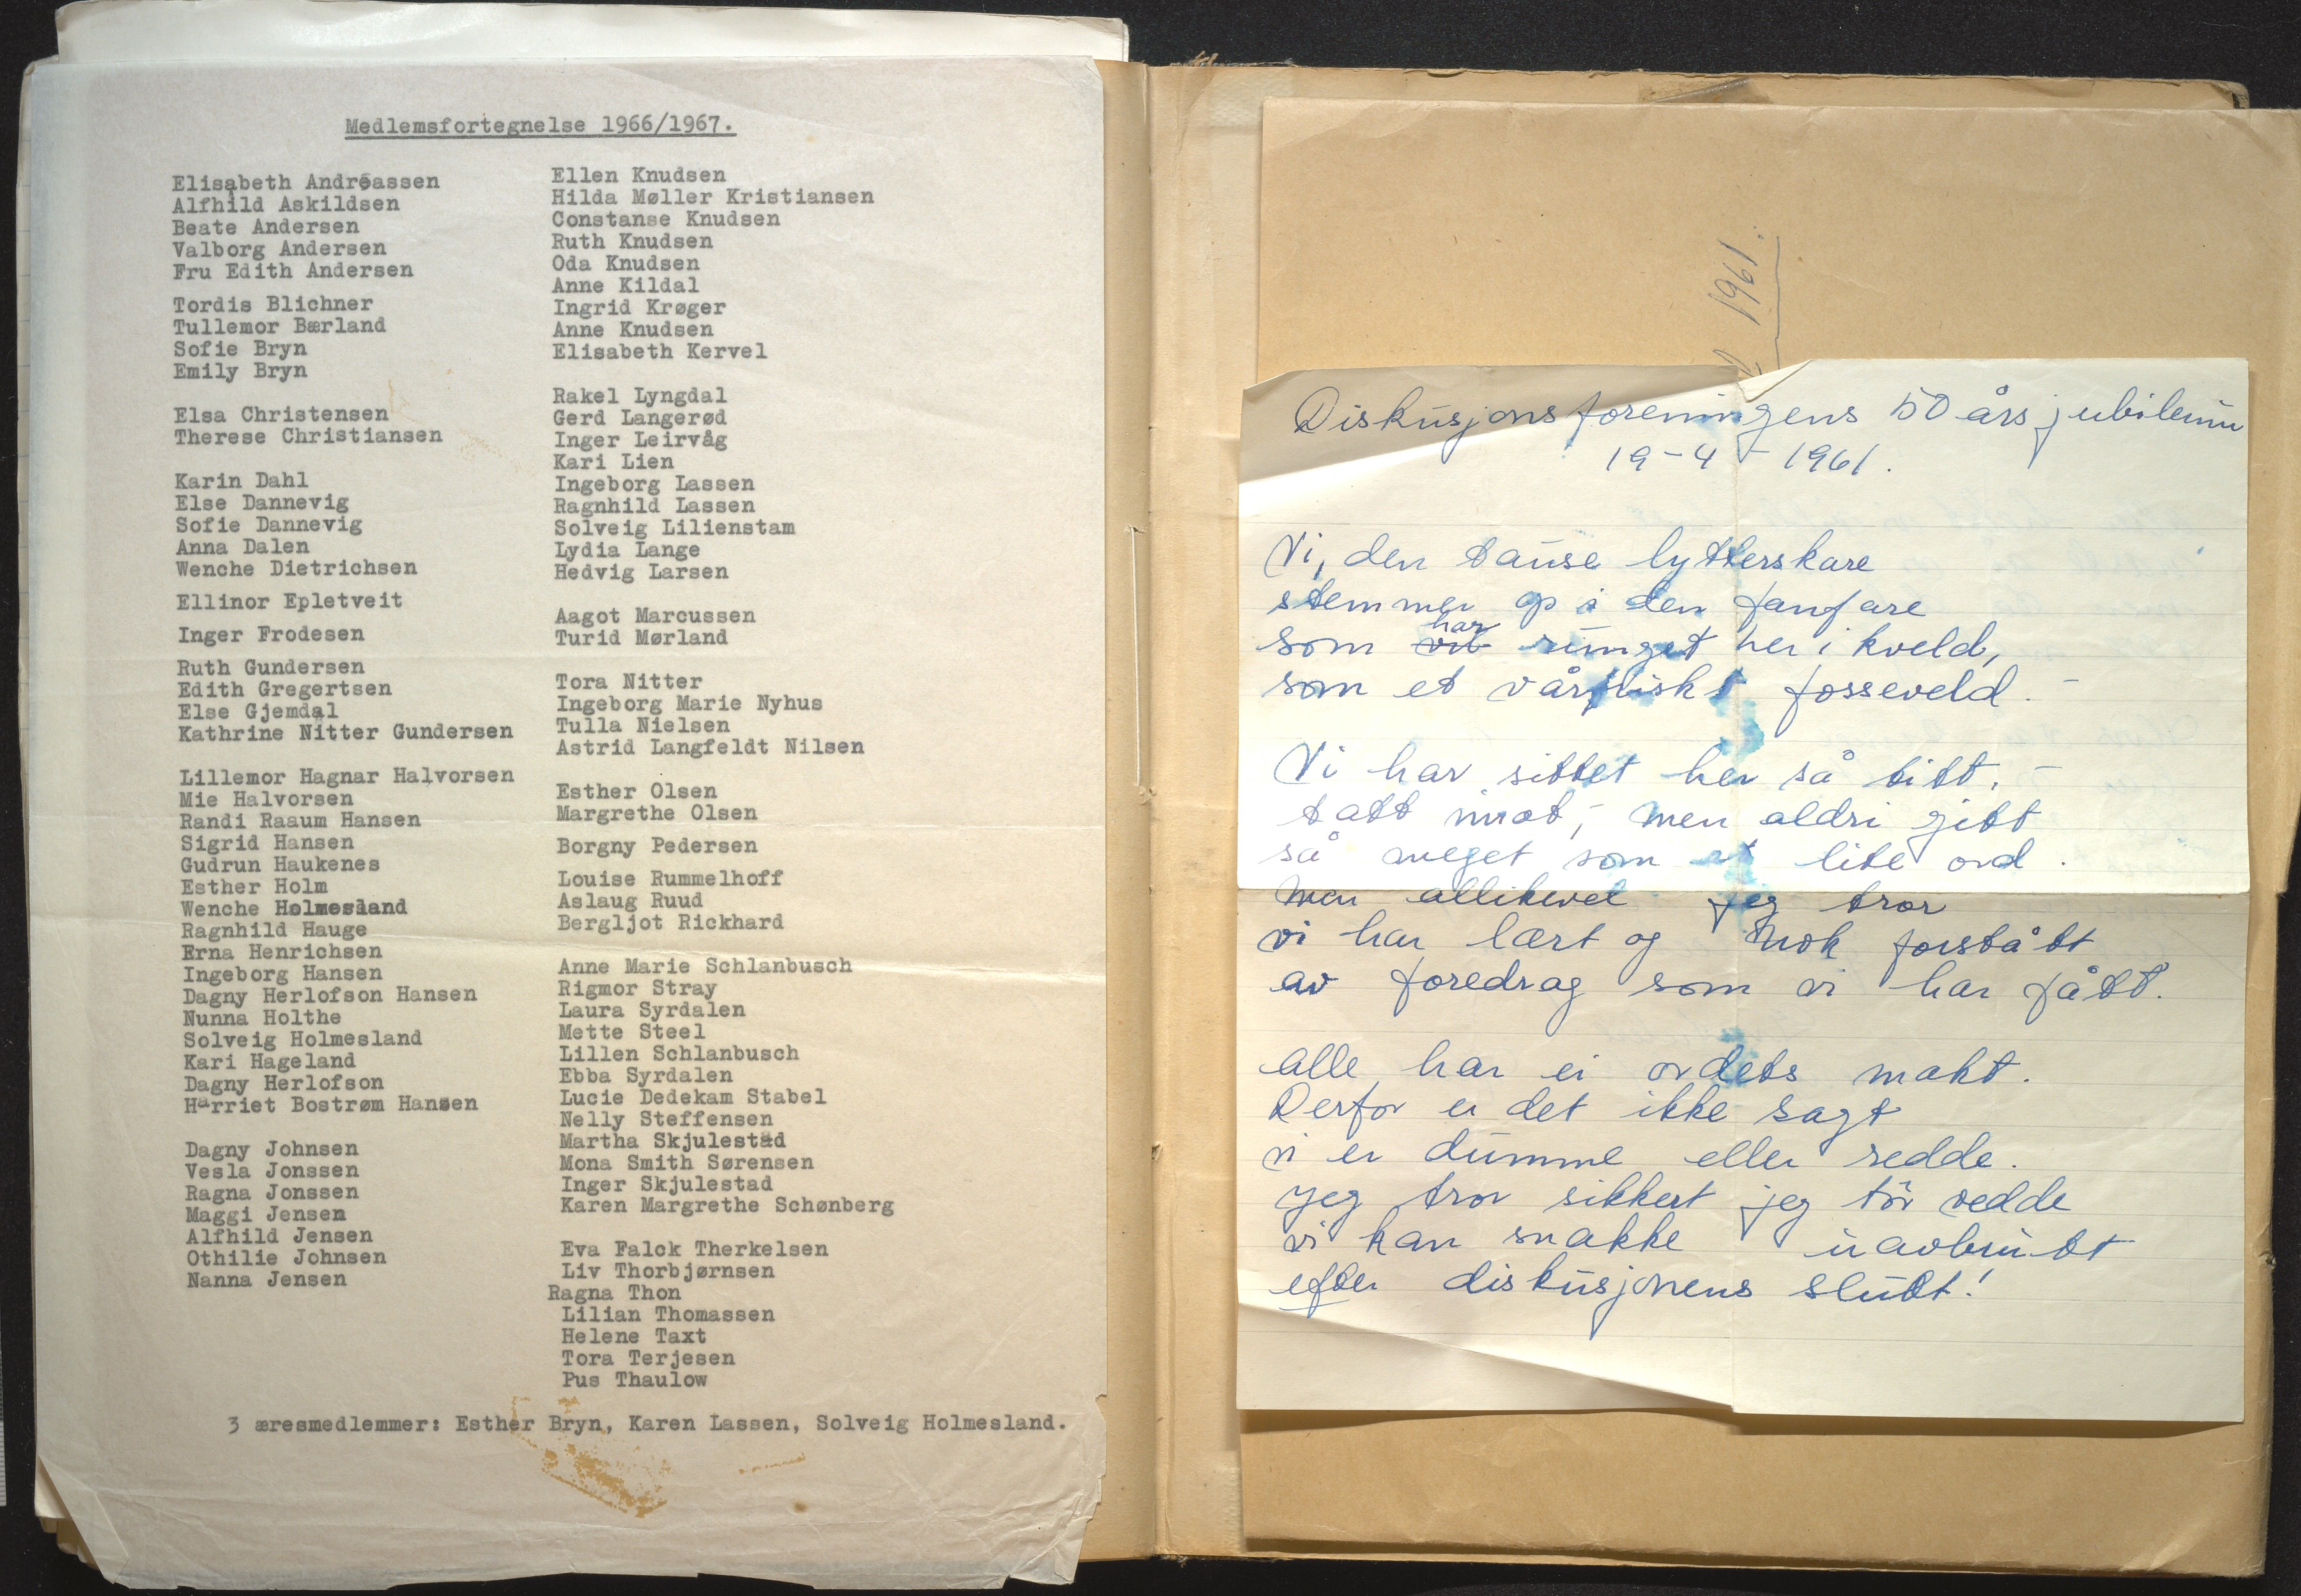 Medlemsfortegnelse 1966/1967.
Elisabeth Andréassen
Alfhild Askildsen
Beate Andersen
Valborg Andersen
Fru Edith Andersen
Tordis Blichner
Tullemor Bærland
Sofie Bryn
Emily Bryn
Elsa Christensen
Therese Christiansen
Karin Dahl
Else Dannevig
Sofie Dannevig
Anna Dalen
Wenche Dietrichsen
Ellinor Epletveit
Inger Frodesen
Ruth Gundersen
Edith Gregertsen
Else Gjemdal
Kathrine Nitter Gundersen
Lillemor Hagnar Halvorsen
Mie Halvorsen
Randi Raaum Hansen
Sigrid Hansen
Gudrun Haukenes
Esther Holm
Wenche Holmesland
Ragnhild Hauge
Erna Henrichsen
Ingeborg Hansen
Dagny Herlofson Hansen
Nunna Holthe
Solveig Holmesland
Kari Hageland
Dagny Herlofson
Harriet Bostrøm Hansen
Dagny Johnsen
Vesla Jonssen
Ragna Jonssen
Maggi Jensen
Alfhild Jensen
Othilie Johnsen
Nanna Jensen
Ellen Knudsen
Hilda Møller Kristiansen
Constanse Knudsen
Ruth Knudsen
Oda Knudsen
Anne Kildal
Ingrid Krøger
Anne Knudsen
Elisabeth Kervel
Rakel Lyngdal
Gerd Langerød
Inger Leirvåg
Kari Lien
Ingeborg Lassen
Ragnhild Lassen
Solveig Lilienstam
Lydia Lange
Hedvig Larsen
Aagot Marcussen
Turid Mørland
Tora Nitter
Ingeborg Marie Nyhus
Tulla Nielsen
Astrid Langfeldt Nilsen
Esther Olsen
Margrethe Olsen
Borgny Pedersen
Louise Rummelhoff
Aslaug Ruud
Bergljot Rickhard
Anne Marie Schlanbusch
Rigmor Stray
Laura Syrdalen
Mette Steel
Lillen Schlanbusch
Ebba Syrdalen
Lucie Dedekam Stabel
Nelly Steffensen
Martha Skjulestad
Mona Smith Sørensen
Inger Skjulestad
Karen Margrethe Schønberg
Eva Falck Therkelsen
Liv Thorbjørnsen
Ragna Thon
Lilian Thomassen
Helene Taxt
Tora Terjesen
Pus Thaulow
3 æresmedlemmer: Esther Bryn, Karen Lassen, Solveig Holmesland.
1961.
Diskusjonsforeningens 50 års jubileum
19-4-1961.
Vi, den tause lytterskare
stemmer op i den fanfare
som har runget her i kveld,
som et vårfriskt fosseveld. -
Vi har sittet her så titt, -
tatt imot, - men aldri gitt
så meget som et lite ord.
Men allikevel jeg tror
vi har lært og nok forstått
av foredrag som vi har fått.
Alle har ei ordets makt.
Derfor er det ikke sagt
vi er dumme eller redde.
Jeg tror sikkert jeg tör vedde
vi kan snakke uavbrutt
efter diskusjonens slutt!